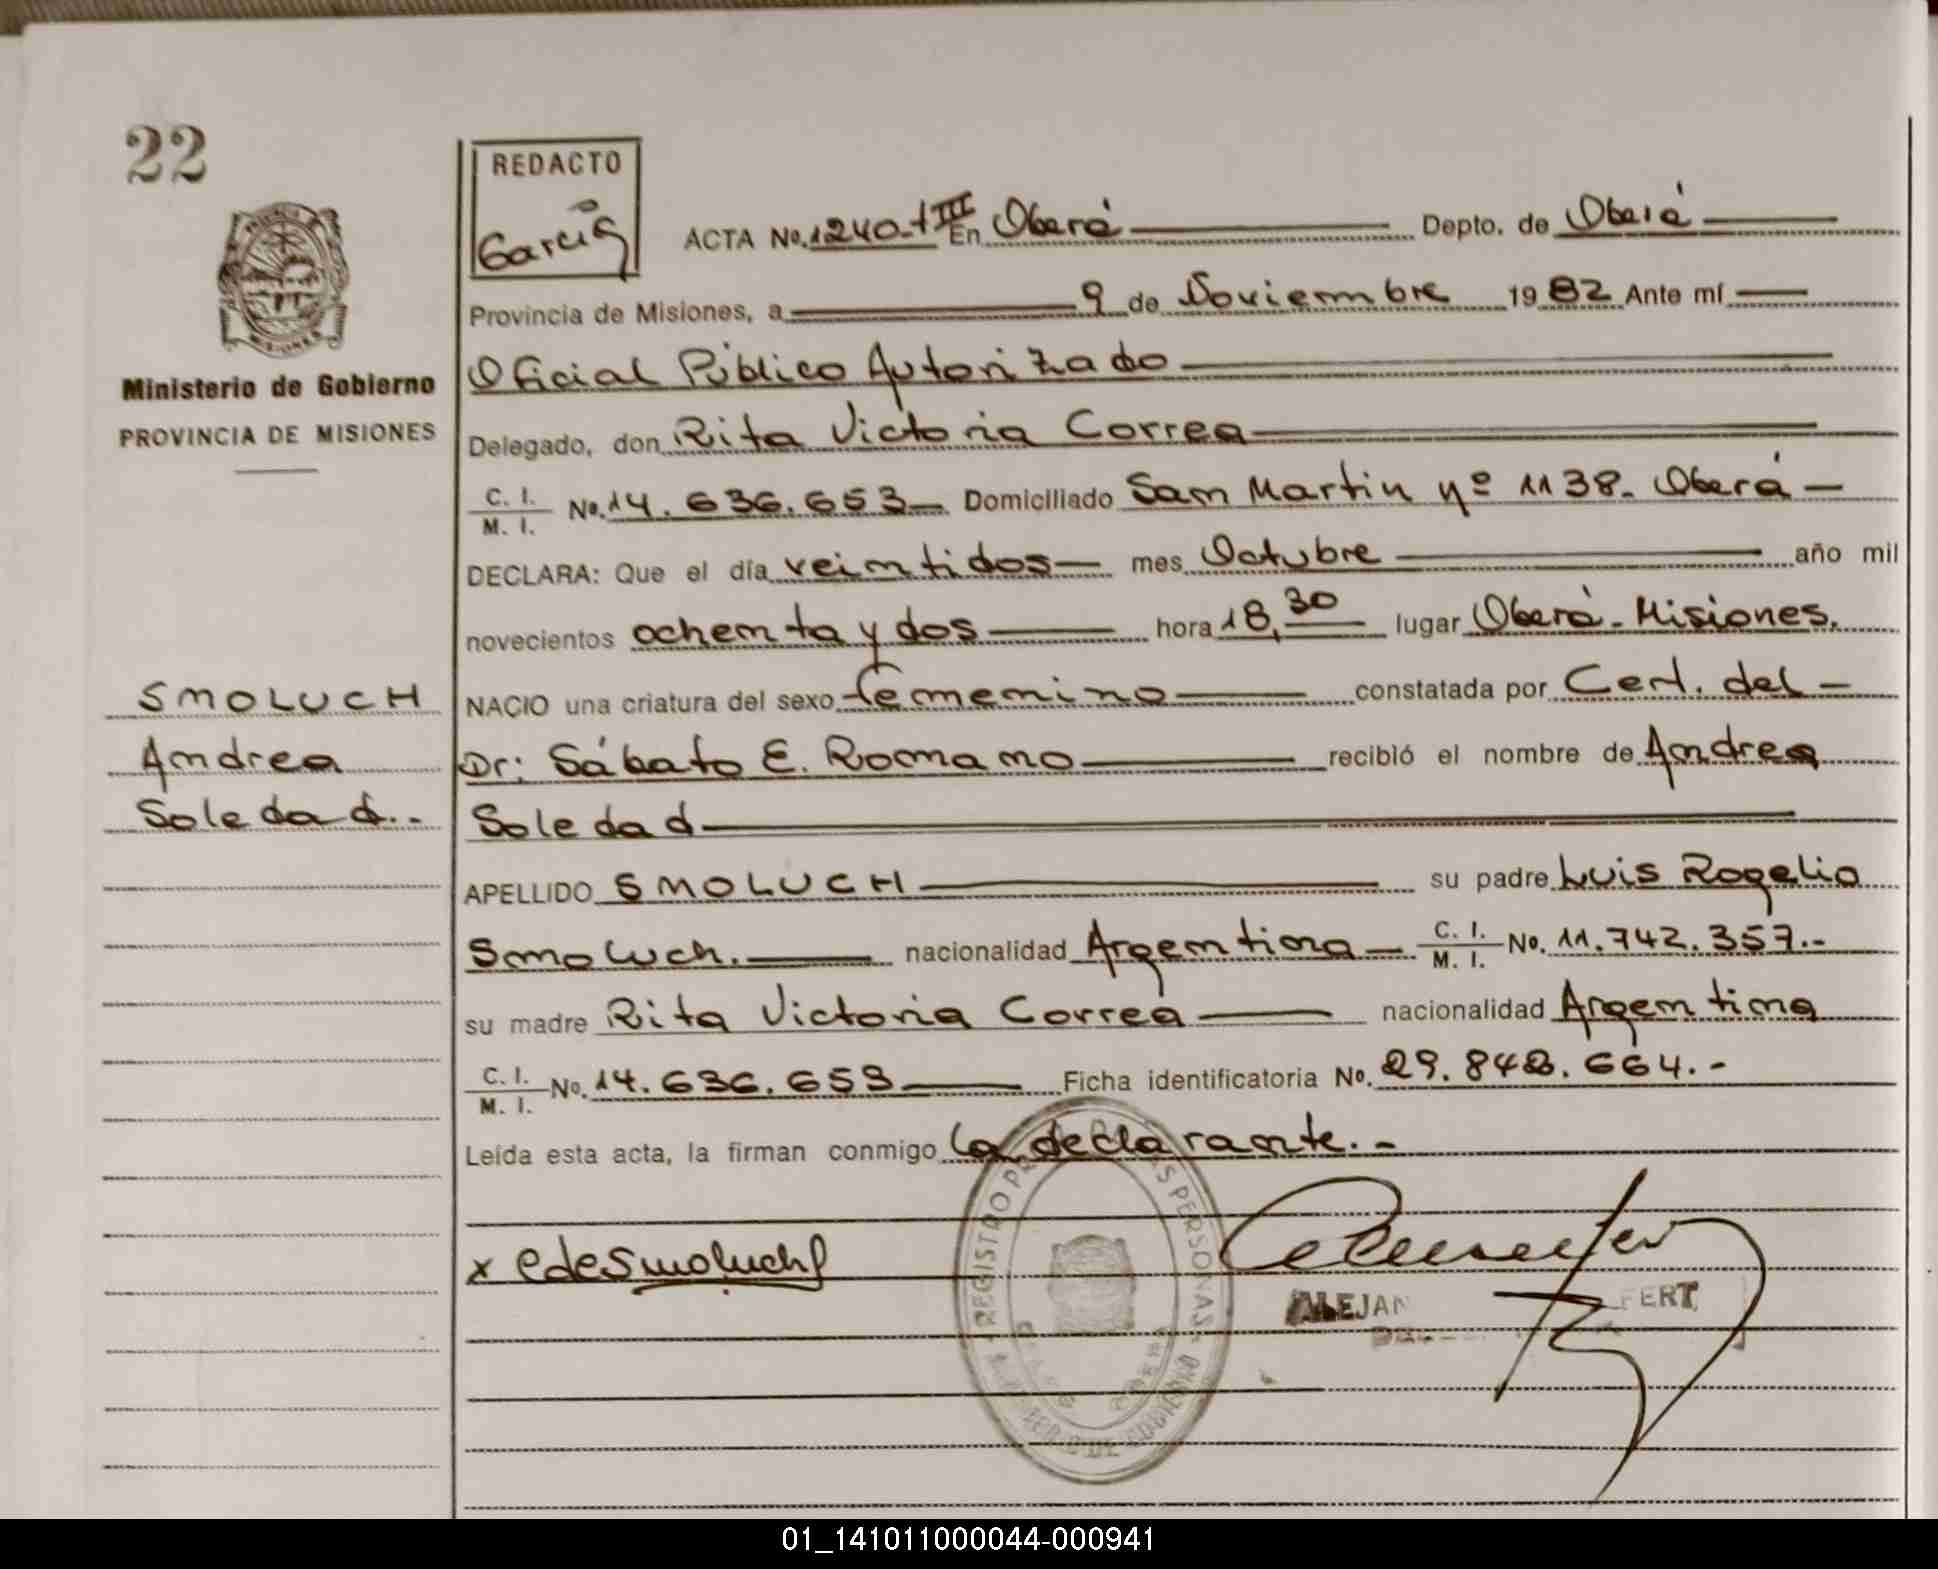 22
REDACTO
Garcia
ACTA No. 1240-tIII En Oberá Depto. de Oberá
Provincia de Misiones, a 9 de Noviembre 1982 Ante mí
Oficial Público Autorizado
Delegado, don Rita Victoria Correa
C. I. / M. I. No. 14.636.653 Domiciliado San Martin nº 1138. Oberá
DECLARA: Que el día veintidos mes Octubre año mil
novecientos ochenta y dos hora 18,30 lugar Oberá. Misiones.
NACIO una criatura del sexo femenino constatada por Cert. del
Dr: Sábato E. Romano recibió el nombre de Andrea
Soledad
APELLIDO SMOLUCH su padre Luis Rogelio
Smoluch. nacionalidad Argentina C. I. / M. I. No. 11.742.357.-
su madre Rita Victoria Correa nacionalidad Argentina
C. I. / M. I. No. 14.636.653 Ficha identificatoria No. 29.848.664.-
Leída esta acta, la firman conmigo la declarante.-
x
ALEJAN FERT
REGISTRO AS PERSONAS
Ministerio de Gobierno
PROVINCIA DE MISIONES
SMOLUCH
Andrea
Soledad.-
01_141011000044-000941